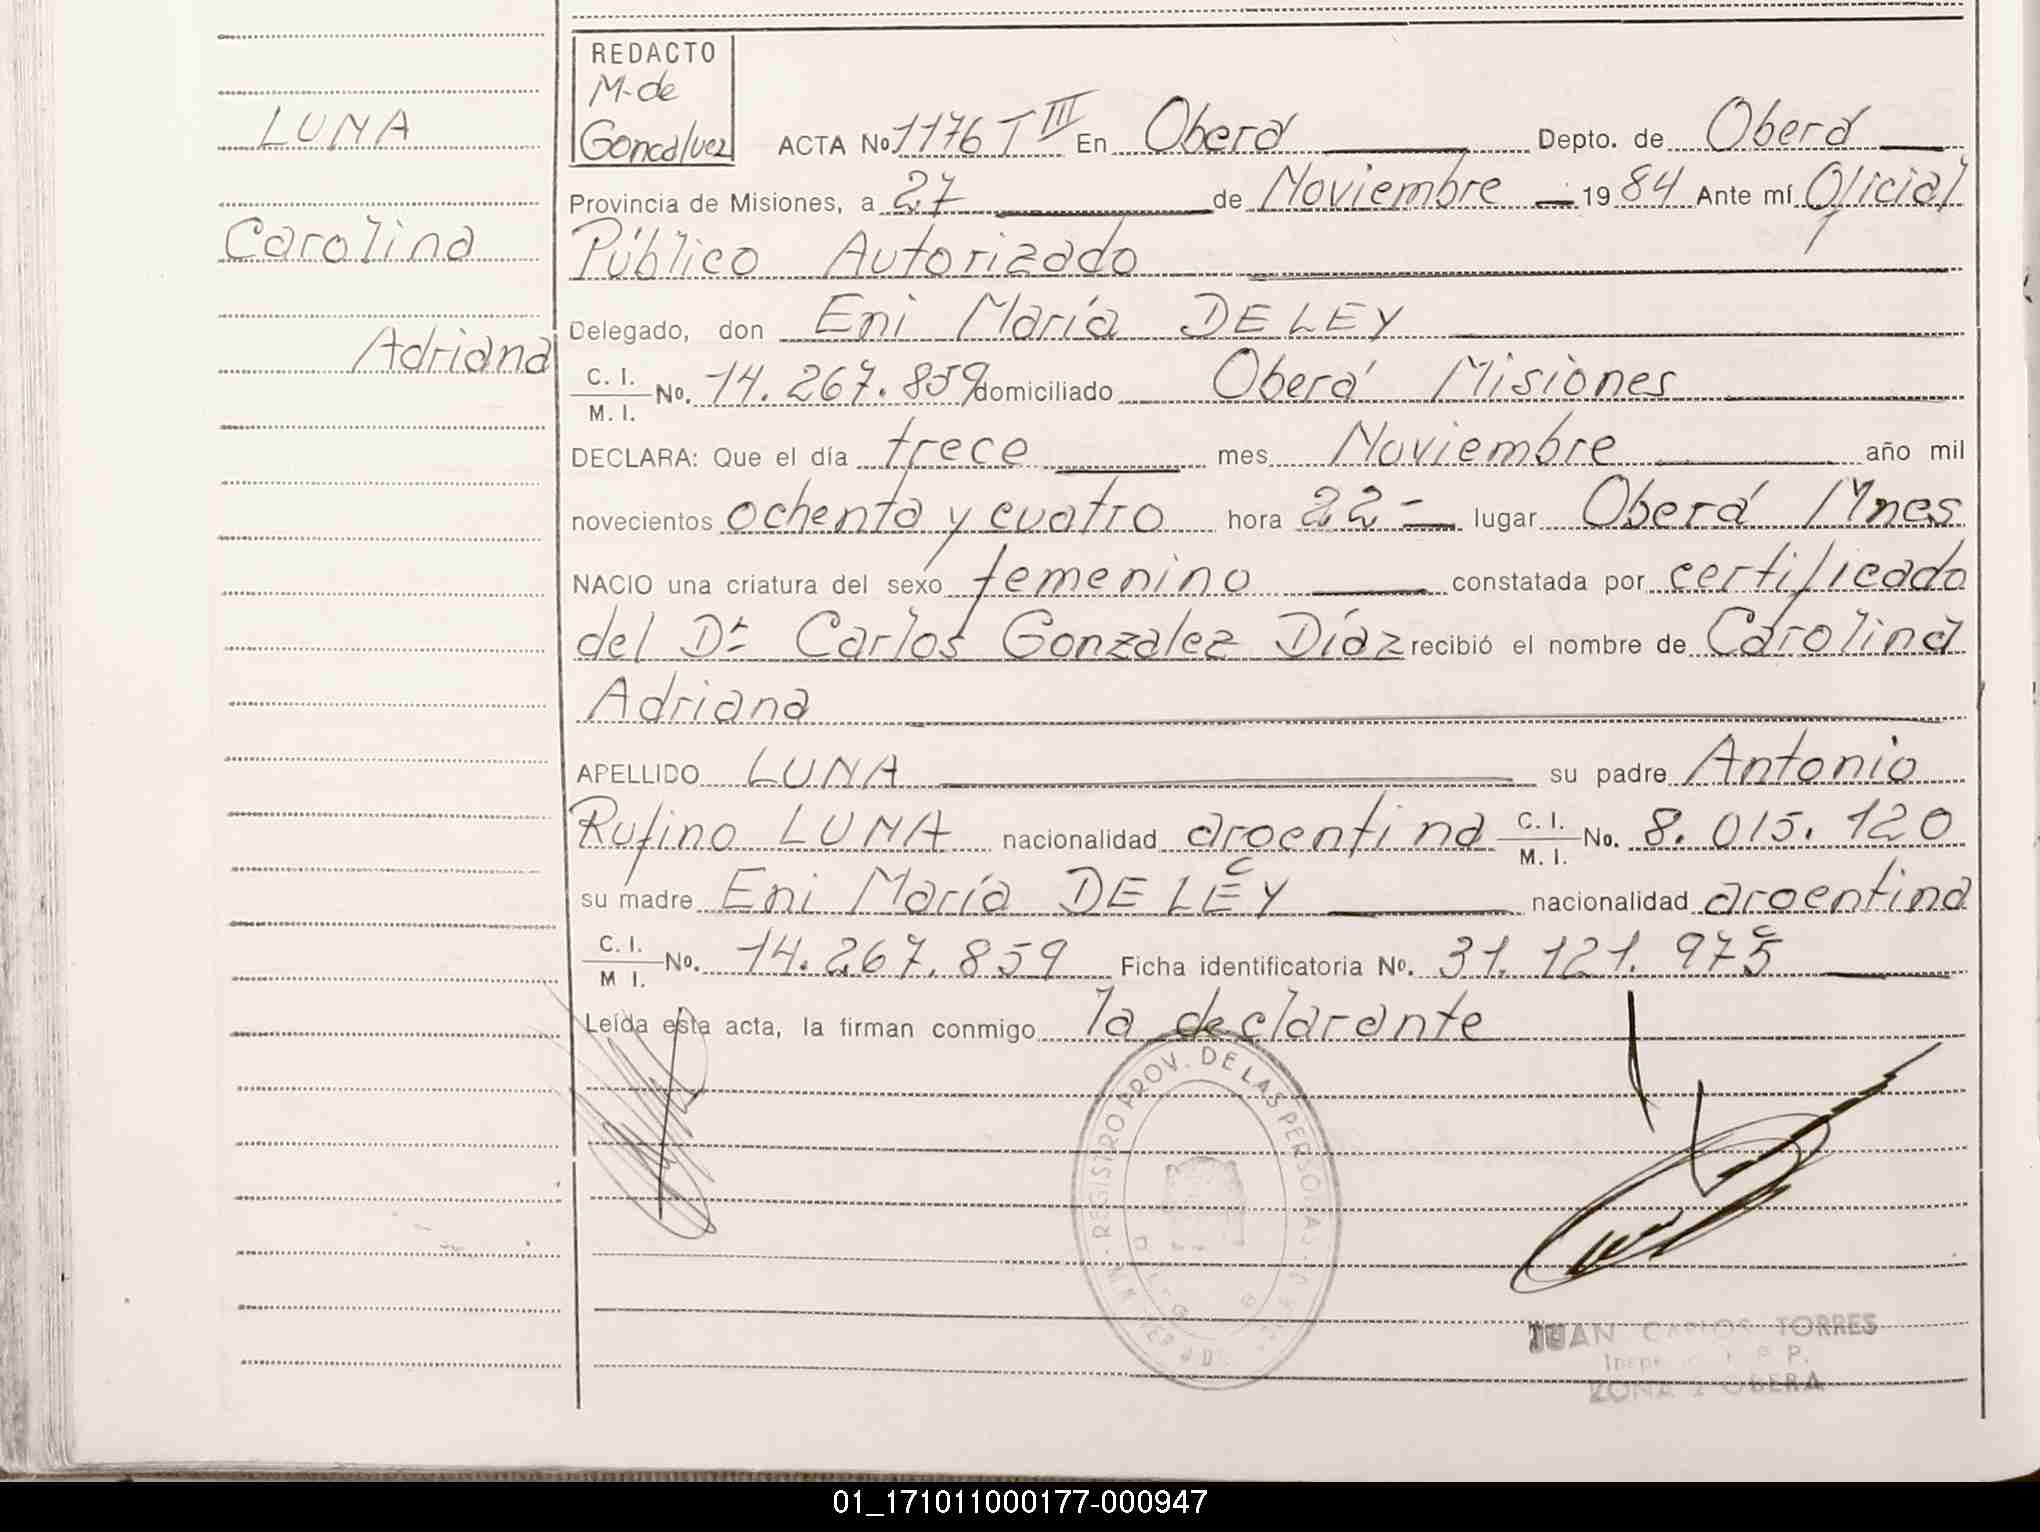 LUNA
Carolina
Adriana
REDACTO
M. de
Goncalvez
ACTA No 1176 T III En Oberá Depto. de Oberá
Provincia de Misiones, a 27 de Noviembre 1984 Ante mí Oficial
Público Autorizado
Delegado, don Eni María DE LEY
C. I. / M. I. No. 14.267.859 domiciliado Oberá Misiones
DECLARA: Que el día trece mes Noviembre año mil
novecientos ochenta y cuatro hora 22 - lugar Oberá Mnes
NACIO una criatura del sexo femenino constatada por certificado
del Dr. Carlos Gonzalez Díaz recibió el nombre de Carolina
Adriana
APELLIDO LUNA su padre Antonio
Rufino LUNA nacionalidad argentina C. I. / M. I. No. 8.015.120
su madre Eni María DE LEY nacionalidad argentina
C. I. / M I. No. 14.267.859 Ficha identificatoria No. 31.121.975
Leída esta acta, la firman conmigo la declarante
REGISTRO PROV. DE LAS PERSONAS
JUAN CARLOS TORRES
ZONA OBERA
01_171011000177-000947